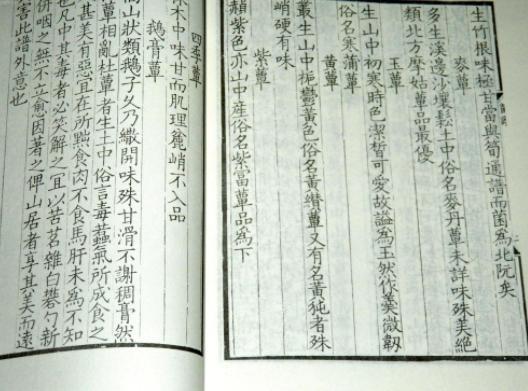 生竹根味極甘當與筍通譜而菌為北阮矣
麥蕈
多生溪邊沙壤鬆土中俗名麥丹蕈未詳味殊美絕
類北方摩姑蕈品最優
玉蕈
生山中初寒時色潔皙可愛故謚為玉然作羹微韌
俗名寒蒲蕈
黃蕈
叢生山中梔鬱黃色俗名黃纘蕈又有名黃㹠者殊
峭硬有味
紫蕈
赬紫色亦山中産俗名紫富蕈品為下
四季蕈
木中味甘而肌理麄峭不入品
鵝膏蕈
高山狀類鵝子久乃繖開味殊甘滑不謝稠膏然
蕈相亂杜蕈者生土中俗言毒氣所成食之
甚美有惡宜在所黜食肉不食馬肝未為不知
也凡中其毒者必笑解之宜以苦茗雜白礬勺新
併咽之無不立愈因著之俾山居者享其美而遠
害此譜外意也